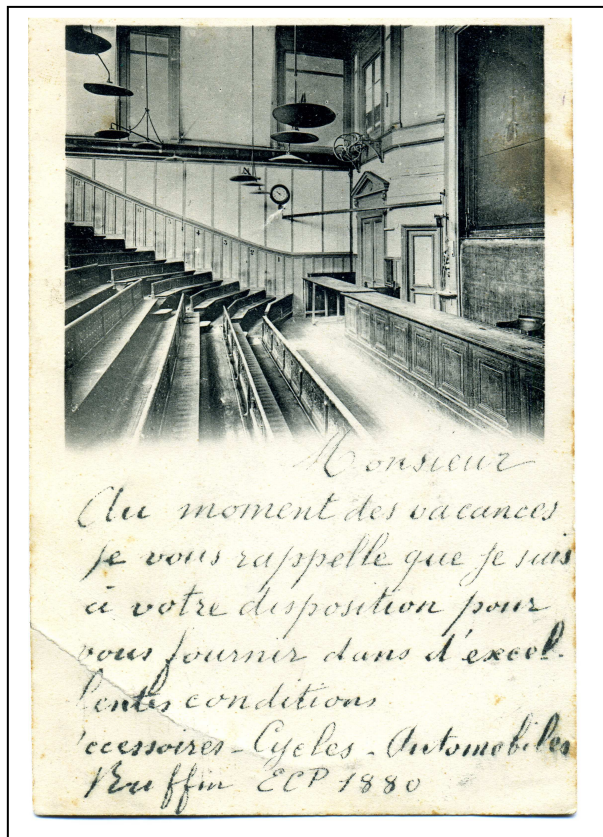 Monsieur
Au moment des vacances
je vous rappelle que je suis
à votre disposition pour
vous fournir dans d'excel-
lentes conditions
ccessoires - Cycles - Automobiles
ECP 1880